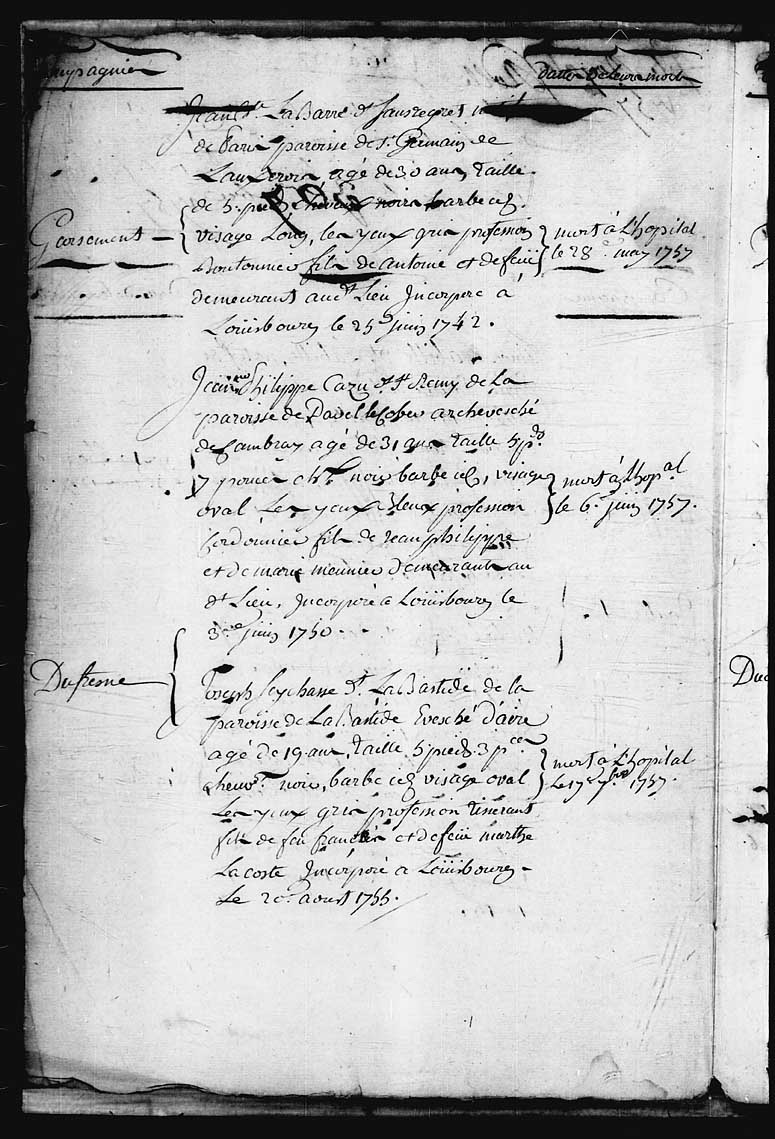 Compagnies
datte de leurs morts
Jean Bte. La Barre dt. Sansregret
de Paris paroisse de St. Germain de
Lauxerois agé de 30 ans, taille
de 5 pieds cheveux noirs barbe id.
visage Long, les yeux gris profession
Boutonnier fils de antoine et de feue
demeurant aud. Lieu Incorporé à
Loüisbourg le 25 juin 1742.
Garsement
mort à L'hopital
le 28e. may 1757
Jean Philippe Cazu dt. St. Remy de La
paroisse de archevesché
de Cambray agé de 31 ans taille 5 pds.
7 pouces chx. noirs barbe id, visage
oval Les yeux Bleux profession
Cordonnier fils de Jean philippe
et de marie meunier demeurants au
dt. Lieu, Incorporé a Loüisbourg le
3e. juin 1750.
mort à L'hopal.
le 6e. juin 1757.
Dufresne
Joseph Seychasse dt. La Bastide de la
paroisse de La Bastide Evesché d'aire
agé de 19 ans, taille 5 pieds 3 pces.
cheuvx. noirs, barbe id. visage oval
Les yeux gris profession tisserant
fils de feu francois et de feüe marthe
Lacoste Incorporé a Loüisbourg
Le 20e. aoust 1755.
mort à L'hopital
Le 17e. 7bre 1757.